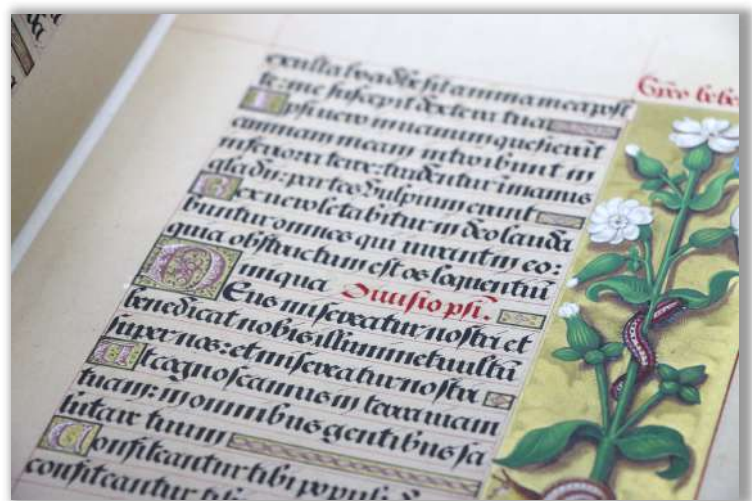 exultabo adhesit anima mea post
te: me suscepit dextera tua
Ipsi uero in uacuum quesierūt
animam meam introibunt in
inferiora terre: tradentur in manus
gladii: partes vulpium erunt
Rex uero letabitur in deo lauda
buntur omnes qui iurant in eo:
quia obstructum est os loquentiū
iniqua Diuisio psi.
Deus misereatur nostri et
benedicat nobis illuminet uultū
super nos: et misereatur nostri
Ut cognoscamus in terra uiam
tuam: in omnibus gentibus sa
lutare tuum
Confiteantur tibi populi
confiteantur tibi